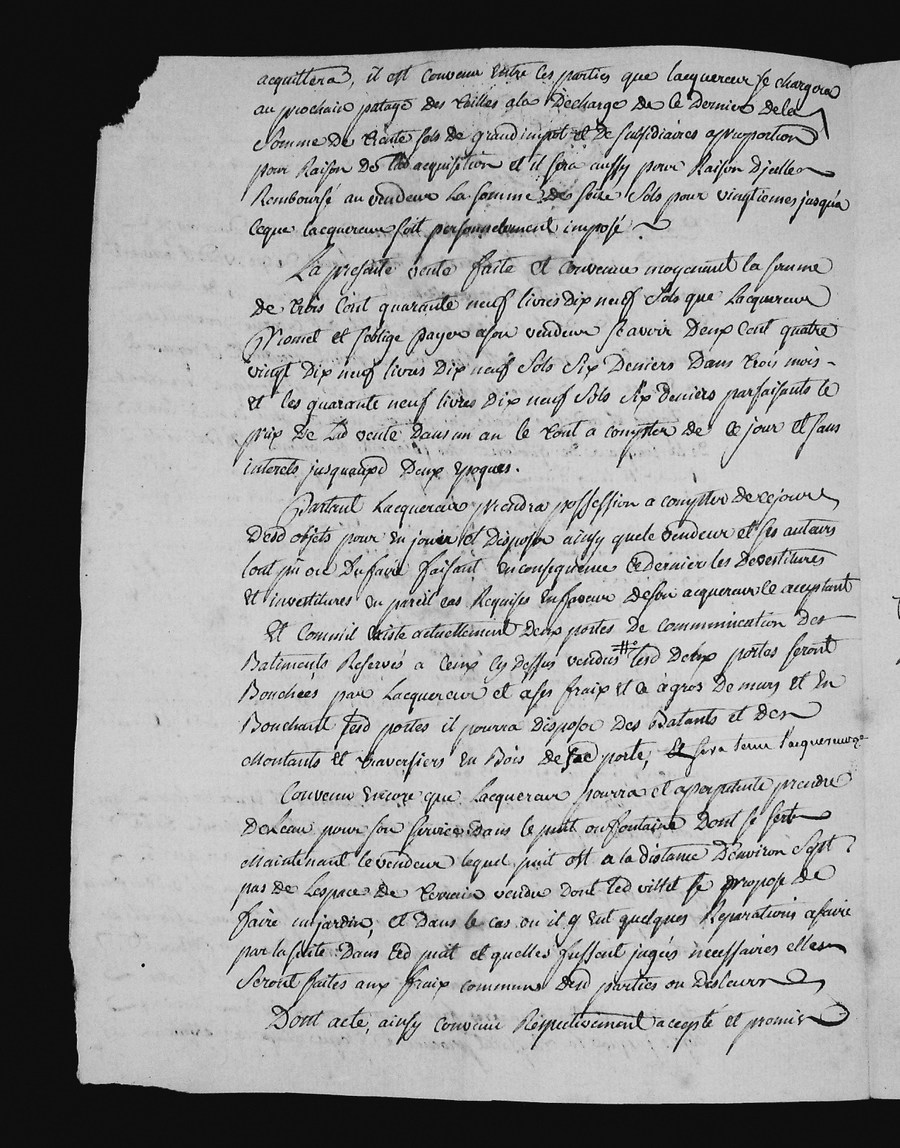 acquittera, il est convenu entre les parties que lacquereur se chargera
au prochain patage des tailles a la Decharge de ce Dernier de la
Somme de trente sols de grand impot et de subsidiaires aproportion
pour Raison de acquisition et il sera aussy pour Raison Djcelle
Remboursé au vendeur La somme de seize Sols pour vingtiemes jusqua
ceque lacquereur soit personnelement imposé
La presente vente faite et convenue moyenant la somme
de trois Cent quarante neuf livres Dix neuf Sols que Lacquereur
Promet et soblige payer a son vendeur Scavoir Deux Cent quatre
vingt Dix neuf livres Dix neuf Sols Six Deniers Dans trois mois
et les quarante neuf livres Dix neuf Sols Six deniers parfaisants le
prix de Ld vente Dans un an le tout a compter de ce jour et sans
interets jusquauxd Deux Epoques.
Partant Lacquereur prendra possession a compter de ce jour
Desd objets pour en jouir et Disposer ainsy que le vendeur et ses auteurs
lont pu ou Du faire faisant en consequence ce dernier les Devestitures
et investitures en pareil cas Requises en faveur de son acquereur ce acceptant
Et Comme il Existe actuellement Deux portes de communication Des
Batiments Reservés a Ceux Cy dessus vendus lesd Deux portes seront
Bouchées par Lacquereur et a ses fraix et ce a gros De murs et En
Bouchant lesd portes il pourra disposer Des Batants et Des
Montants et traversiers en Bois de porte, Et sera tenu lacquereur
Convenu encore que Lacquereur pourra et a perpetuité prendre
De Leau pour son service dans le puit ou fontaine Dont se sert
Maintenant le vendeur lequel puit est a la distance Denviron Sept
pas de Lespace de terrain vendu Dont led se propose de
faire un jardin, et Dans le cas ou il y Eut quelques Reparations a faire
par la suite Dans led puit et quelles fussent jugés necessaires elles
Seront faites aux fraix commun Desd parties ou Desleurs
Dont acte, ainsy convenu Respectivement accepté et promis